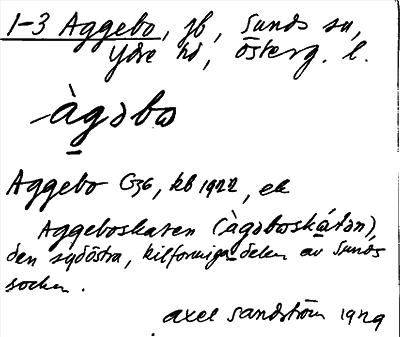 1-3 Aggebo, gb, Sunds sn,
Ydre hd, Österg. l.
àgəbω
Aggebo G36, kb 1922, ek
Aggeboskaten (àgəbωská̀tən),
den sydöstra, kilformiga delen av Sunds
socken.
Axel Sandström 1929